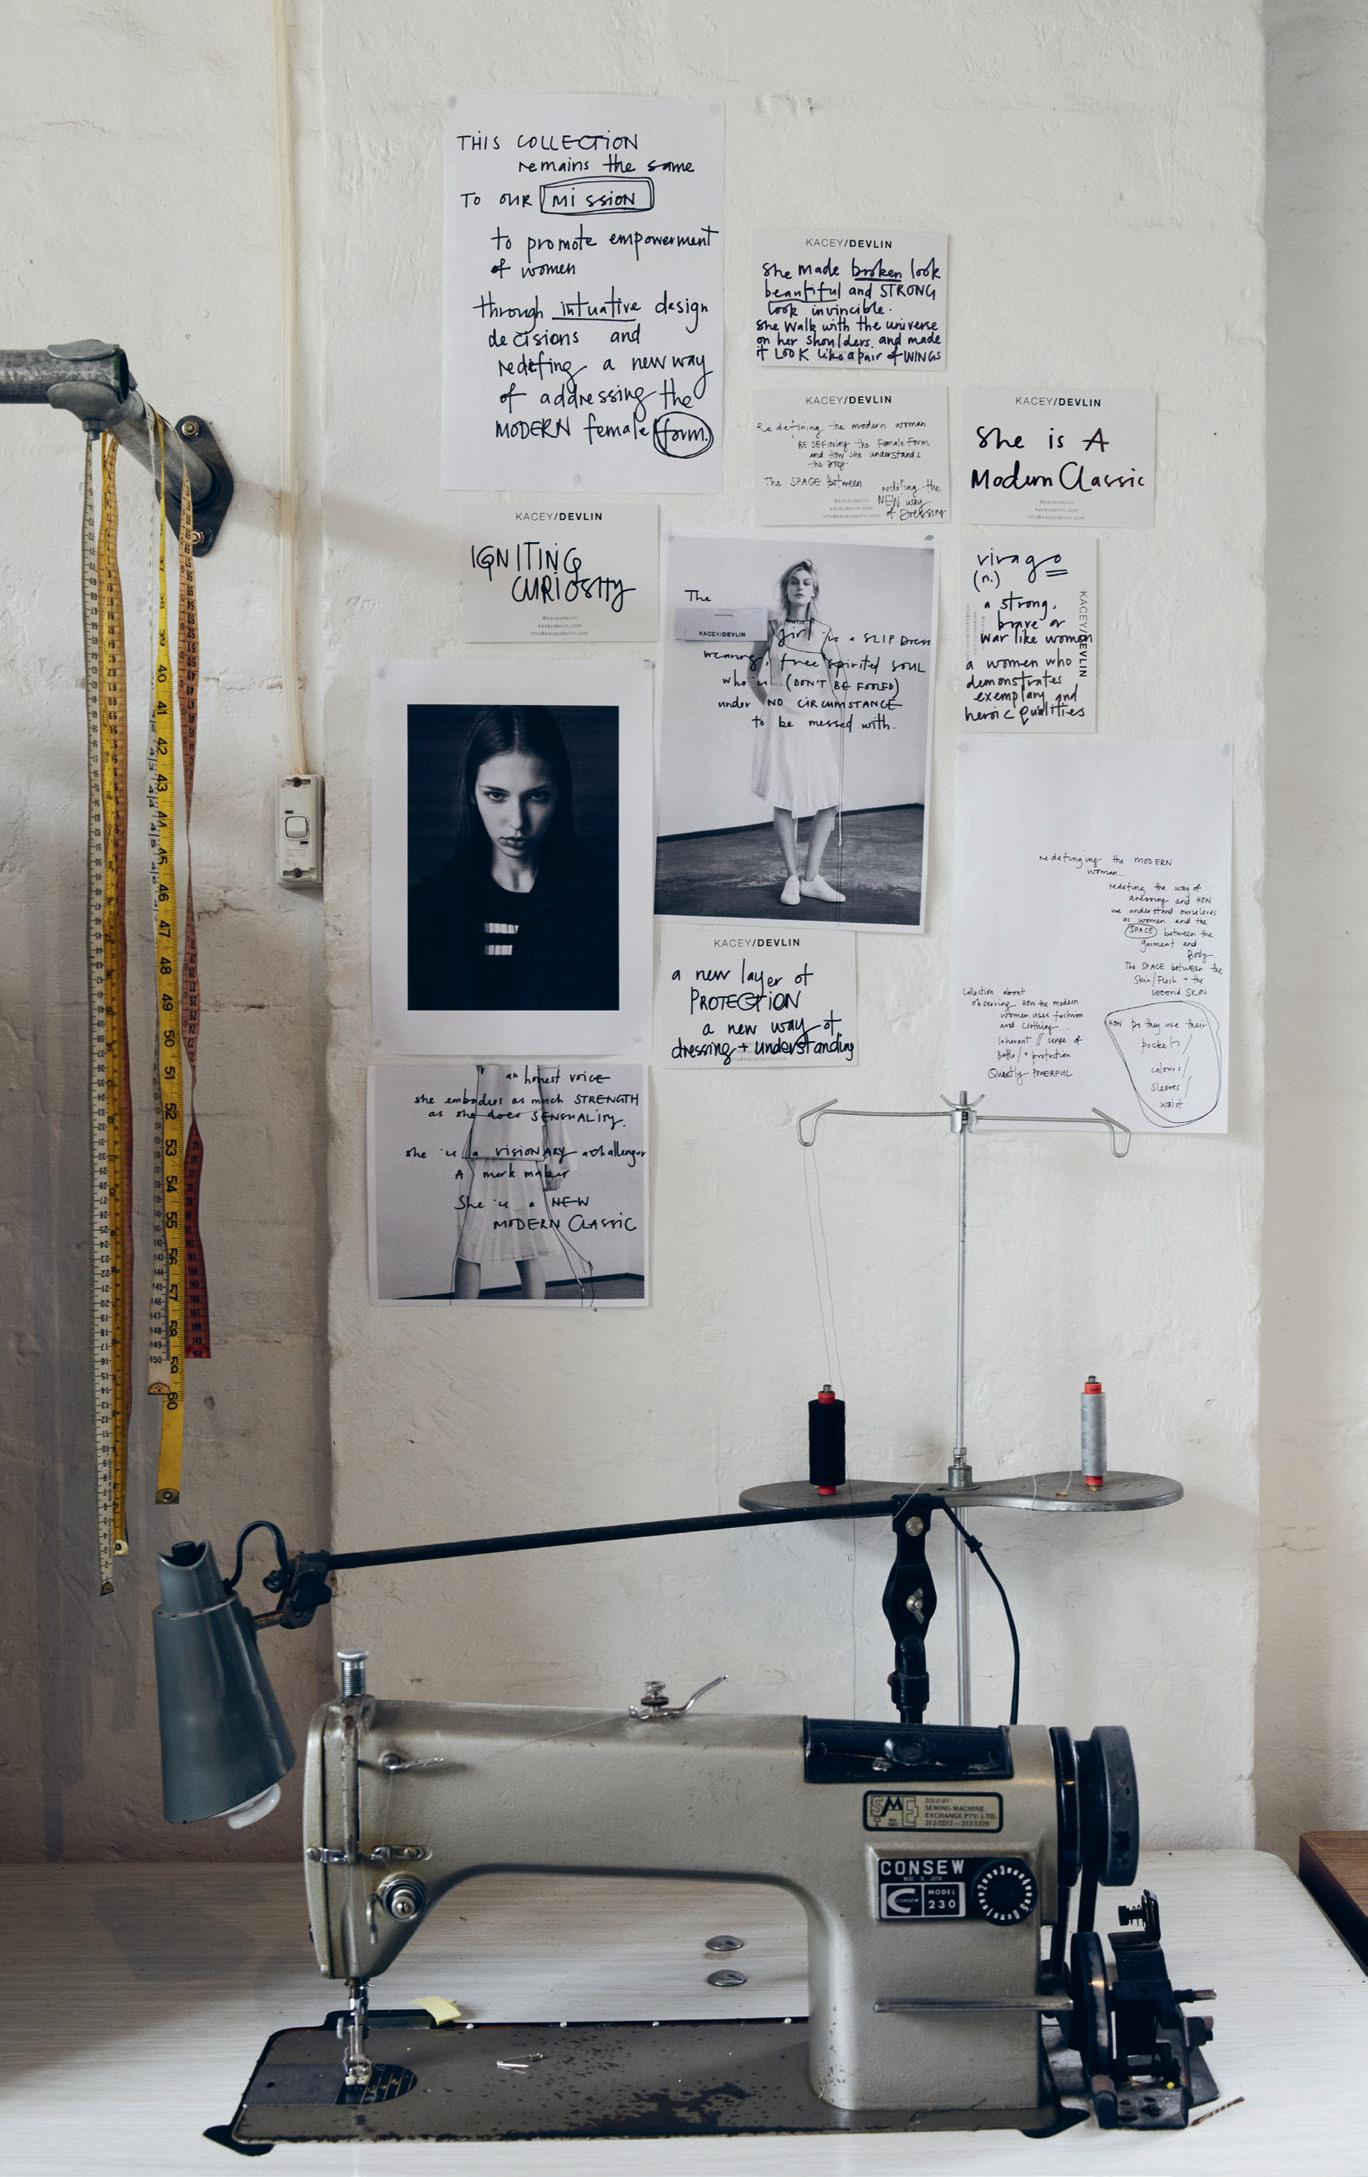 THIS COLLECTION
remains the same
TO OUR MISSION
to promote empowerment
of women
through intuative design
decisions and
redefing a new way
of addressing the
MODERN female form.
KACEY/DEVLIN
She made broken look
beautiful and STRONG
look invincible.
She walk with the universe
on her shoulders. and made
it LOOK like a pair of WINGS
KACEY/DEVLIN
Redefining the modern woman
REDEFINING the Female Form
and How she understands
the Body
The SPACE Between
redefing the
NEW way
of Dressing
@kaceydevlin
kaceydevlin.com
info@kaceydevlin.com
KACEY/DEVLIN
She is A
Modern Classic
@kaceydevlin
kaceydevlin.com
info@kaceydevlin.com
KACEY/DEVLIN
IGNITING
CURIOSITY
@kaceydevlin
kaceydevlin.com
info@kaceydevlin.com
The
KACEY/DEVLIN
girl is a SLIP Dress
wearing, free spirited SOUL
who is (DON'T BE FOOLED)
under NO CIRCUMSTANCE
to be messed with.
virago
(n.)
a strong,
brave or
war like women
a women who
demonstrates
exemplary and
heroic qualities
KACEY/DEVLIN
KACEY/DEVLIN
a new layer of
PROTECTION
a new way of
dressing + understanding
redefinging the MODERN
woman
redefing the way of
dressing and HOW
we understand ourselves
as women and the
SPACE between the
garment and
Body
The SPACE between the
Skin/Flesh + the
second SKIN
Collection about
observing How the modern
women uses fashion
and clothing...
Inherant // sense of
+ protection
Quietly POWERFUL
HOW Do they use their
pockets/
colours/
sleeves/
waist
an honest VOICE
she embodies as much STRENGTH
as she does SENSUALITY.
she is a VISIONARY a challenger
A mark maker
She is a NEW
MODERN CLASSIC
SME
SOLD BY:
SEWING MACHINE
EXCHANGE PTY. LTD.
212-2212 — 212-1329
CONSEW
MADE IN JAPAN
CONSEW
MODEL
230